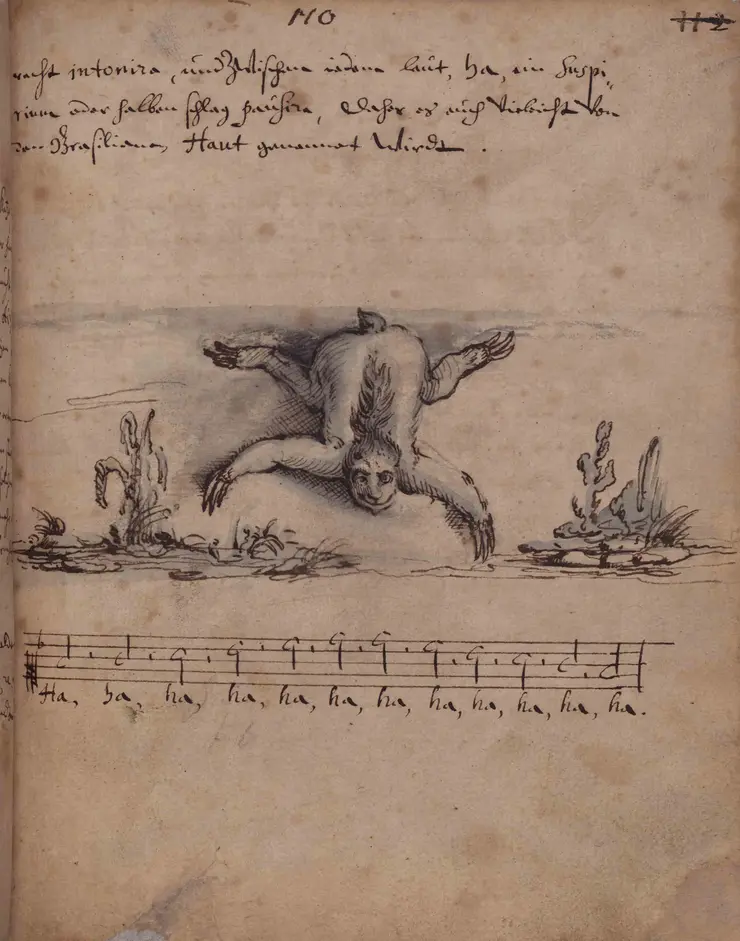 110
112
recht intonire, und Zwischen iedem laut, ha, ein Suspi-
rium oder halben schlag pausire, Daher es auch Vieleicht Von
den Brasilianern, Haut genannet Wirdt.
Ha, ha, ha, ha, ha, ha, ha, ha, ha, ha, ha, ha.